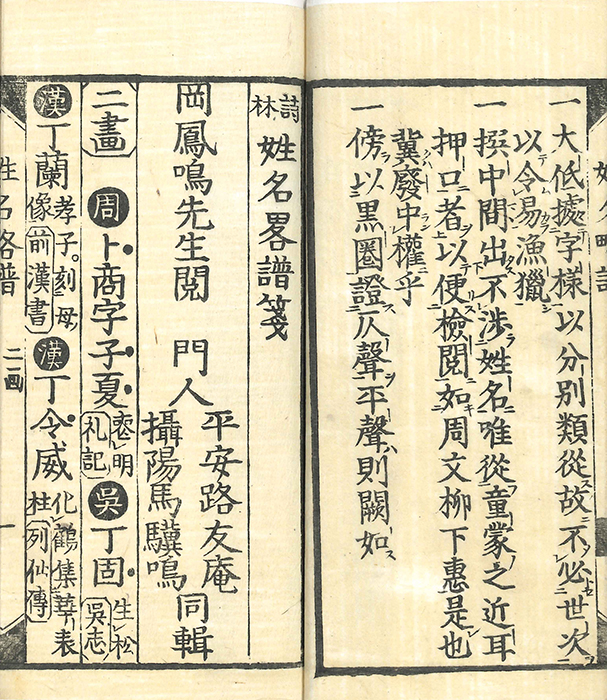 一大低㩀字樣以分別類從故不必世次
以令易漁獵
一撰中間出不涉姓名唯從童蒙之近耳
押口者以便檢閱如周文柳下惠是也
冀廢中權乎
一傍以黑圈證仄聲平聲則闕如
詩林姓名畧譜箋
岡鳳鳴先生閲 門人 平安路友庵 攝陽馬驥鳴 同輯
二畫 周 卜商字子夏 明 礼記 吳 丁固 生松 吳志
漢 丁蘭 孝子刻母像 前漢書 漢 丁令威 化鶴集華表柱 列仙傳
姓名畧譜 二画 一